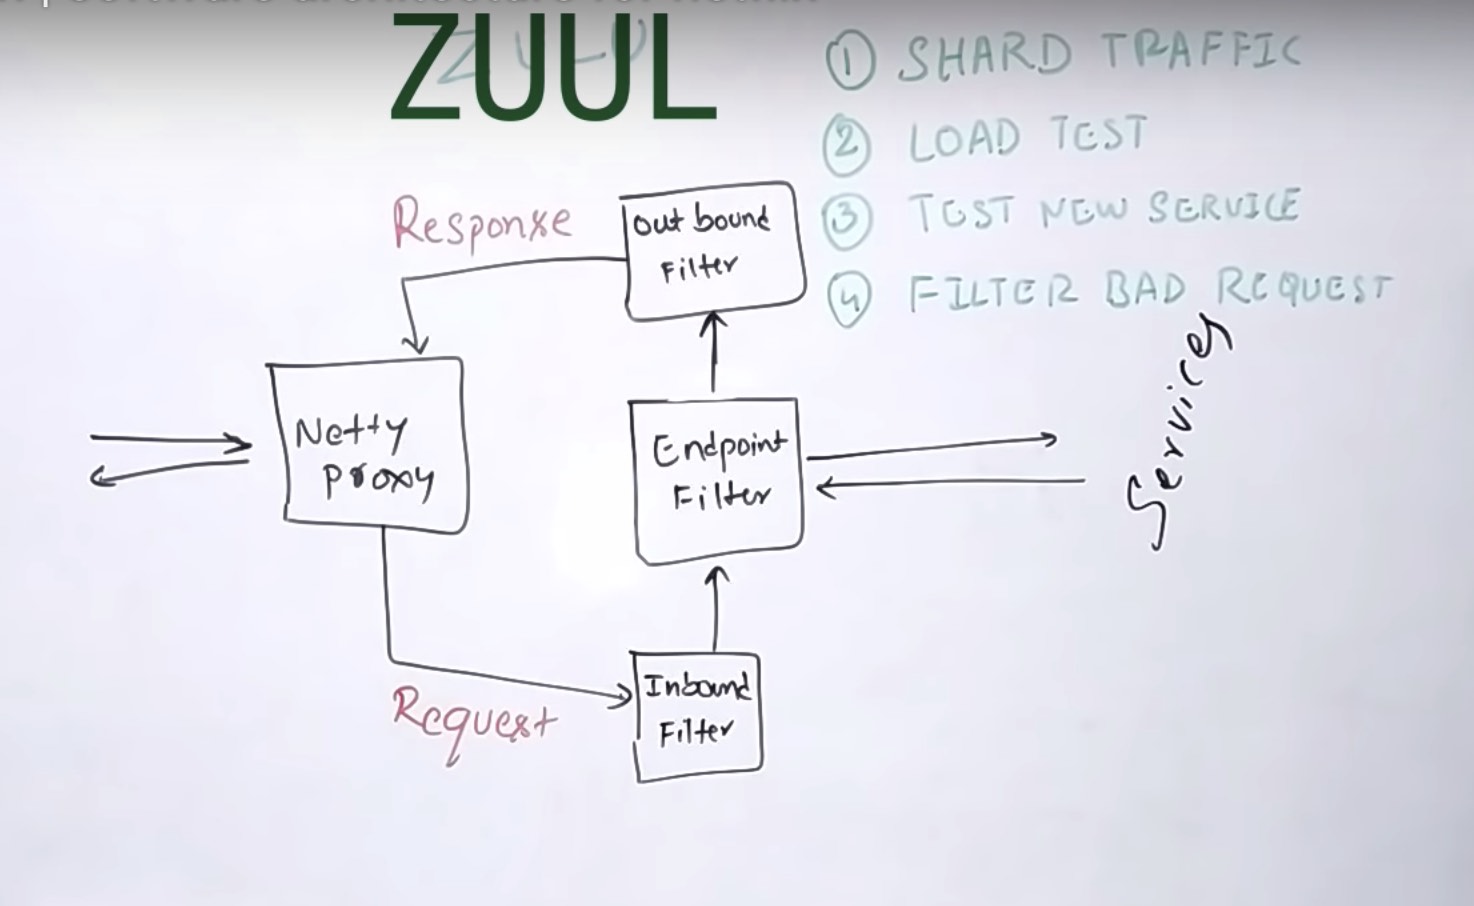 ZUUL
① SHARD TRAFFIC
② LOAD TEST
③ TEST NEW SERVICE
④ FILTER BAD REQUEST
Response
Out bound
Filter
Netty
Proxy
Endpoint
Filter
Services
Request
Inbound
Filter